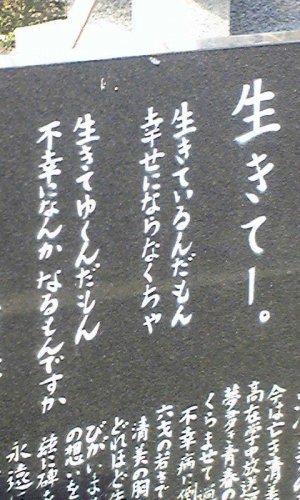 生きてー。
生きているんだもん
幸せにならなくちゃ
生きてゆくんだもん
不幸になんかなるもんですか
今は亡き清美
高在学中放送
夢多き青春
くらませて
不幸病に倒
六才の若さで
清美の胸
どれほど生
びがいま
の想い
緑に碑を
永遠